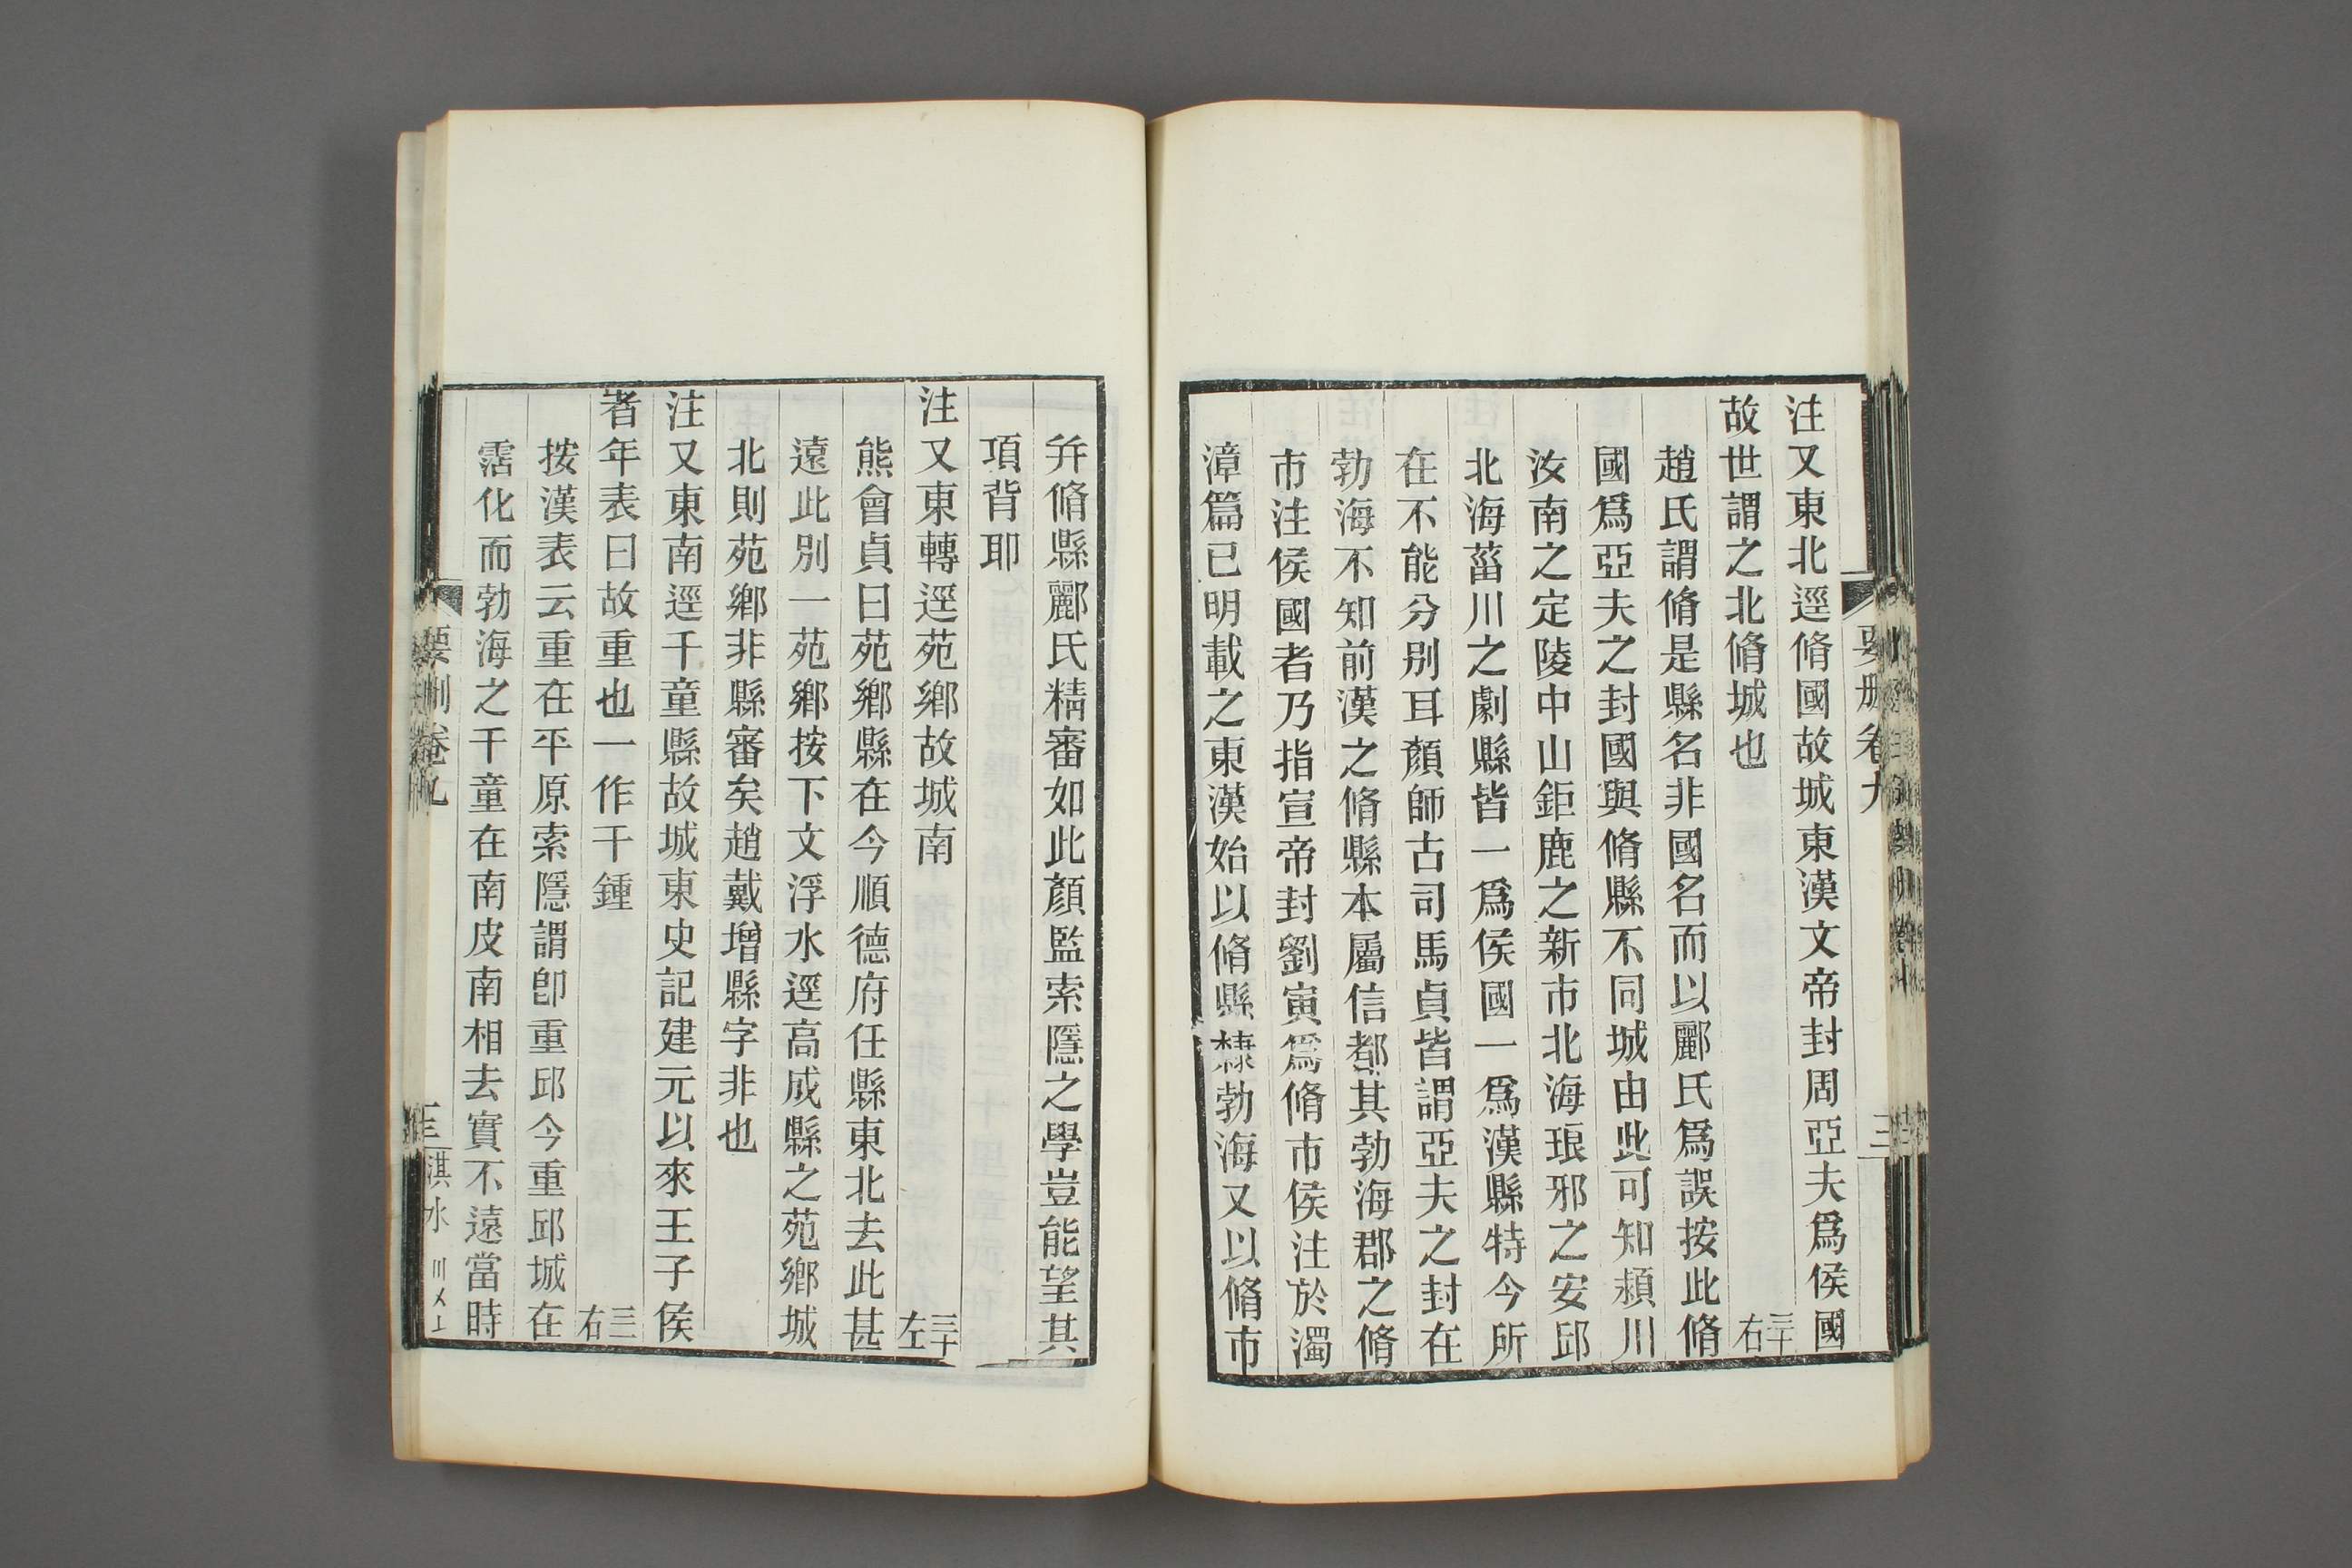 注又東北逕脩國故城東漢文帝封周亞夫爲侯國
故世謂之北脩城也 三十右
趙氏謂脩是縣名非國名而以酈氏爲誤按此脩
國爲亞夫之封國與脩縣不同城由此可知潁川
汝南之定陵中山鉅鹿之新市北海琅邪之安邱
北海菑川之劇縣皆一爲侯國一爲漢縣特今所
在不能分别耳顏師古司馬貞皆謂亞夫之封在
勃海不知前漢之脩縣本屬信都其勃海郡之脩
市注侯國者乃指宣帝封劉寅爲脩市侯注於濁
漳篇已明載之東漢始以脩縣隸勃海又以脩市
并脩縣酈氏精審如此顏監索隱之學豈能望其
項背耶
注又東轉逕苑鄉故城南 三十左
熊會貞曰苑鄉縣在今順德府任縣東北去此甚
遠此別一苑鄉按下文浮水逕高成縣之苑鄉城
北則苑鄉非縣審矣趙戴增縣字非也
注又東南逕千童縣故城東史記建元以來王子侯
者年表曰故重也一作千鍾 三一右
按漢表云重在平原索隱謂卽重邱今重邱城在
霑化而勃海之千童在南皮南相去實不遠當時
要删卷九
三
淇水